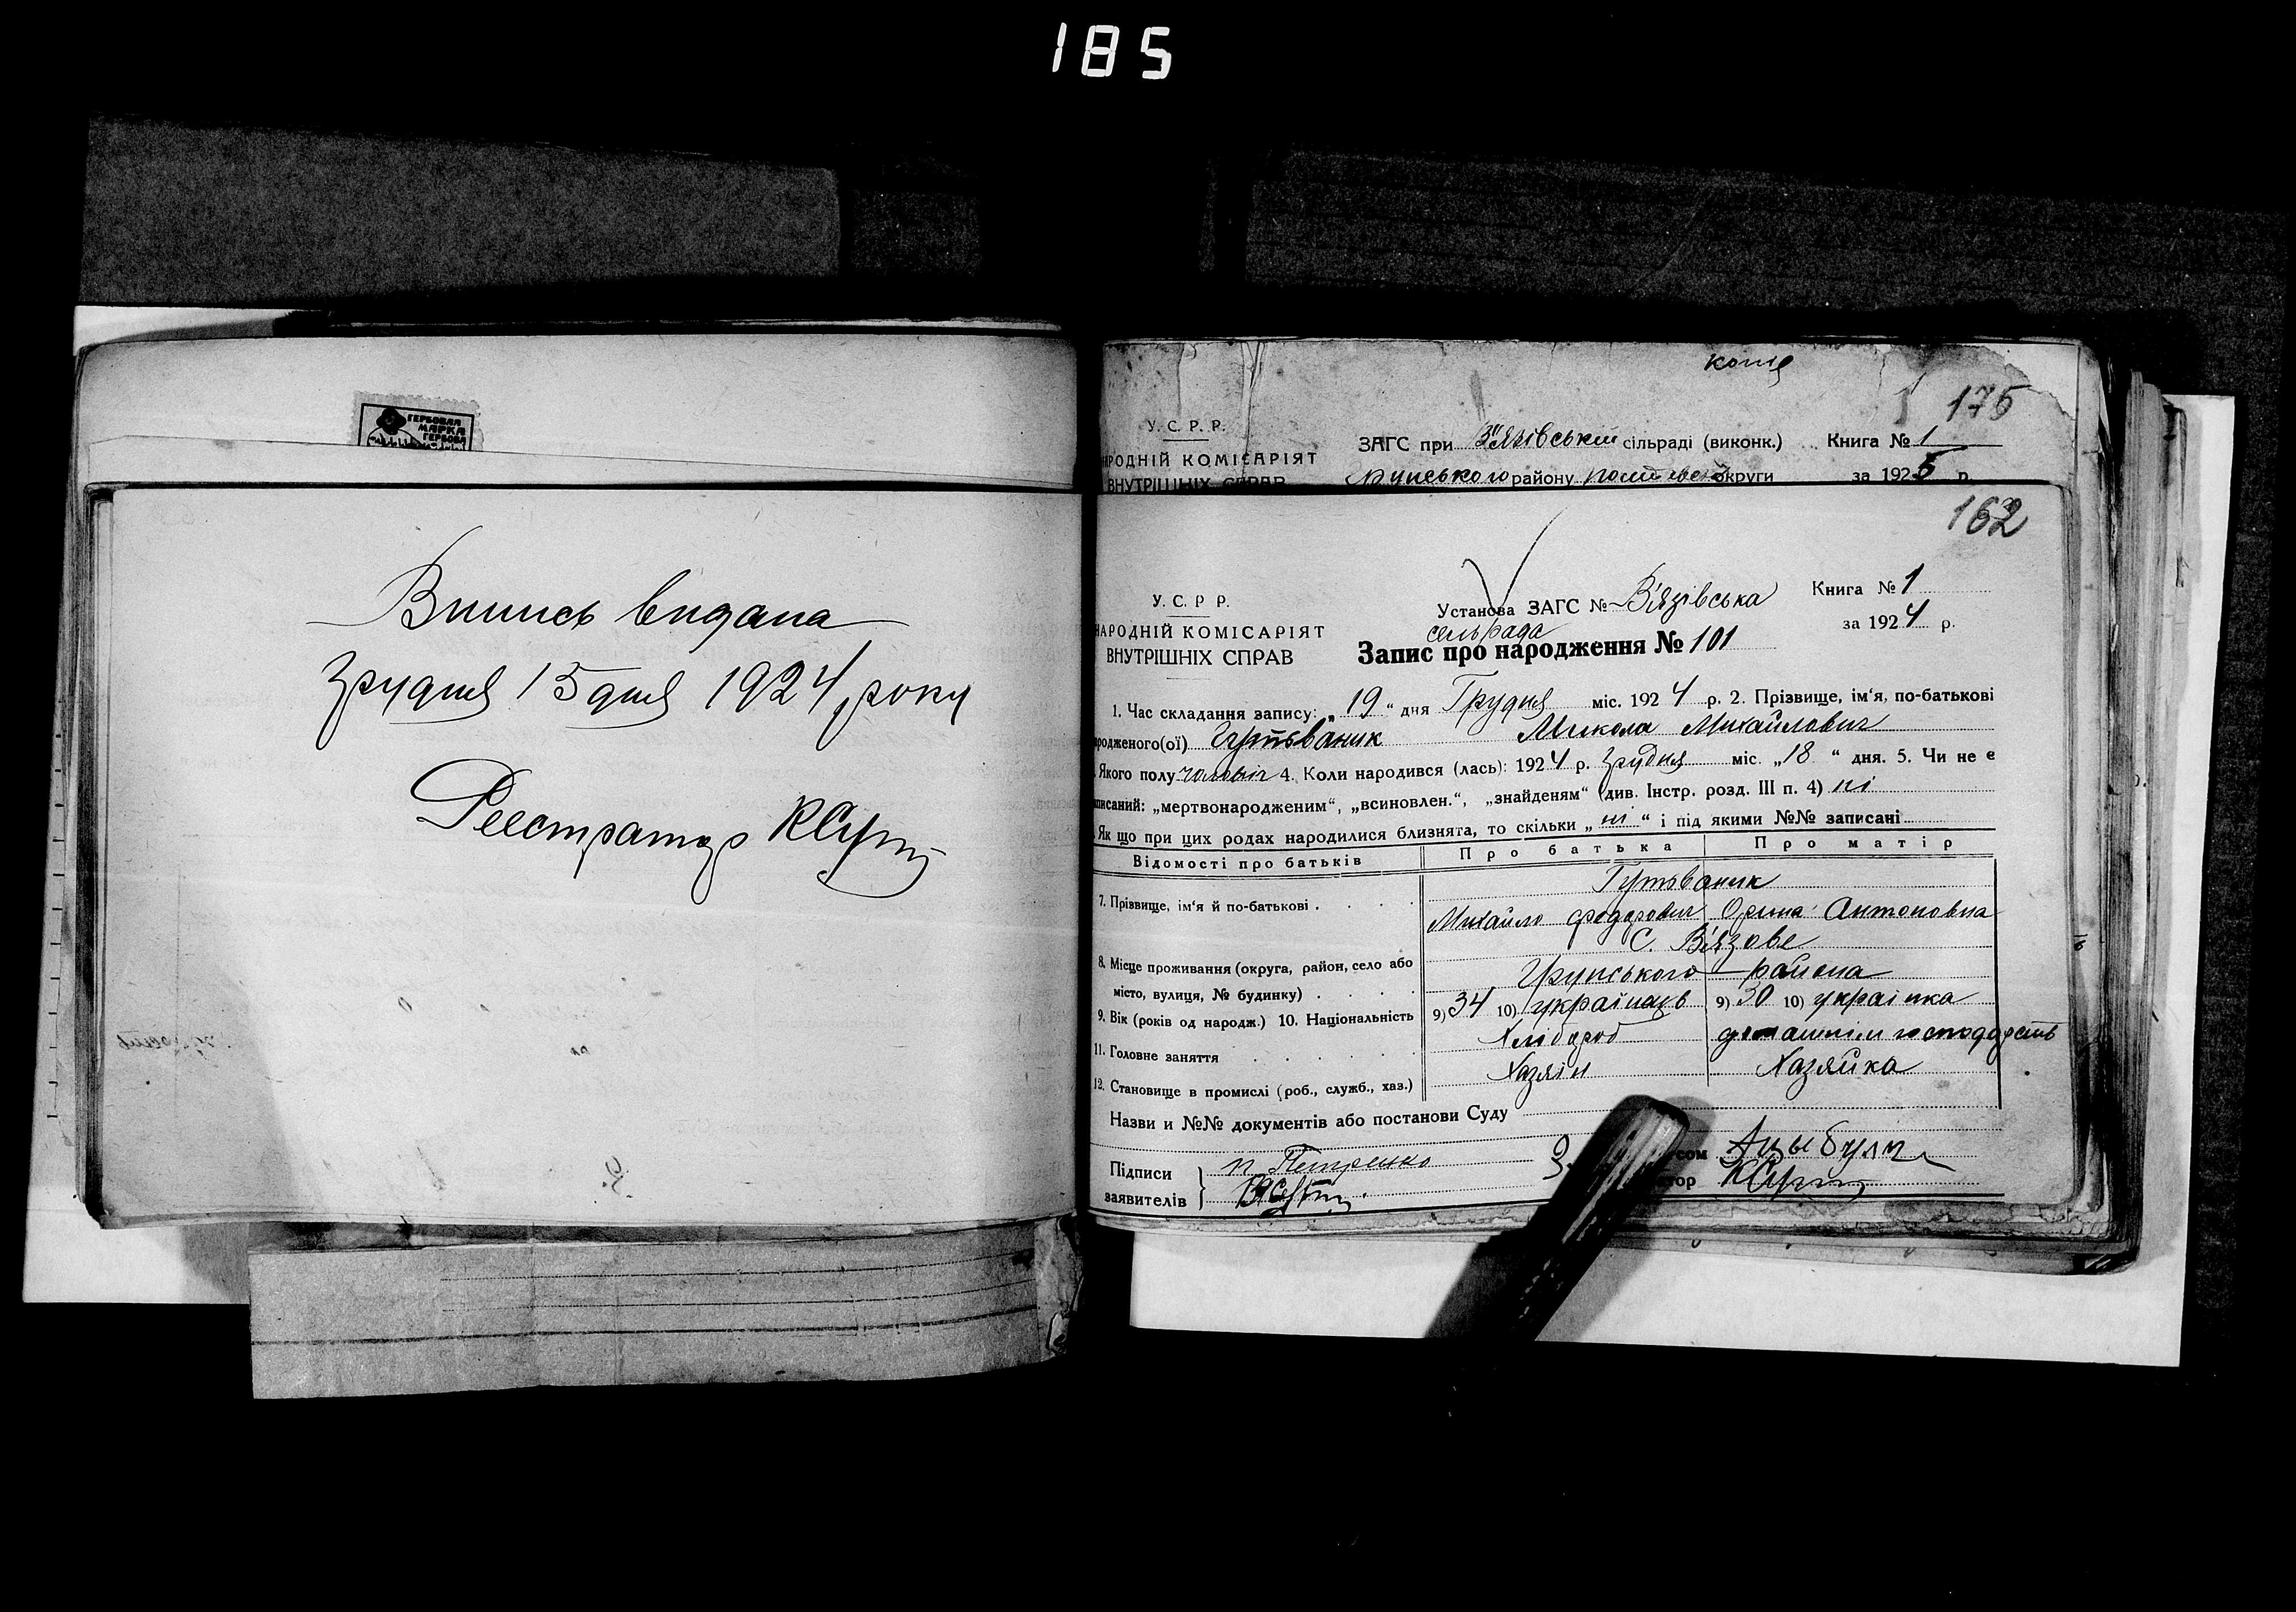 185
ГЕРБОВАЯ
МАРКА
ГЕРБОВА
Випись видана
грудня 15 дня 1924 року
Реєстратор
копія
175
У. С. Р. Р.
РОДНІЙ КОМІСАРІЯТ
ВНУТРІШНІХ СПРАВ
ЗАГС при В'язівській сільраді (виконк.) Книга № 1
Грунського району округи за 1925 р.
162
У. С. Р Р.
НАРОДНІЙ КОМІСАРІЯТ
ВНУТРІШНІХ СПРАВ
Установа ЗАГС № В'язівська
сельрада
Книга № 1
за 1924 р.
Запис про народження № 101
1. Час складання запису: „19“ дня Грудня міс. 1924 р. 2. Прізвище, ім'я, по-батькові
родженого(ої) Гутьваник Микола Михайлович
Якого полу чоловіч 4. Коли народився (лась): 1924 р. грудня міс. „18“ дня. 5. Чи не є
писаний: „мертвонародженим“, „всиновлен.“, „знайденям“ (див. Інстр. розд. III п. 4) ні
Як що при цих родах народилися близнята, то скільки „ні“ і під якими №№ записані
Відомості про батьків Про батька Про матір
7. Прізвище, ім'я й по-батькові
Гутьваник
Михайло Федорович Орина Антоновна
8. Місце проживання (округа, район, село або
місто, вулиця, № будинку)
С. В'язове
Грунського района
9. Вік (років од народж.) 10. Національність 9) 34 10) українець 9) 30 10) українка
11. Головне заняття Хлібороб
12. Становище в промислі (роб., служб., хаз.) Хазяїн Хазяйка
Назви и №№ документів або постанови Суду
Підписи
заявителів
п. Петренко